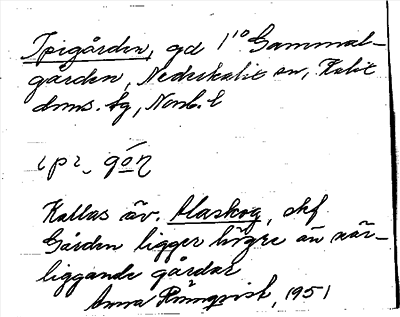 Ipigården, gd 1¹⁰ Gammal-
gården, Nederkalix sn, Kalix
dms. tg, Norrb. l
ɩpɩ- gón
Kallas äv. Alaskog, dkf
Gården ligger högre än när-
liggande gårdar
Anna Rönnqvist, 1951